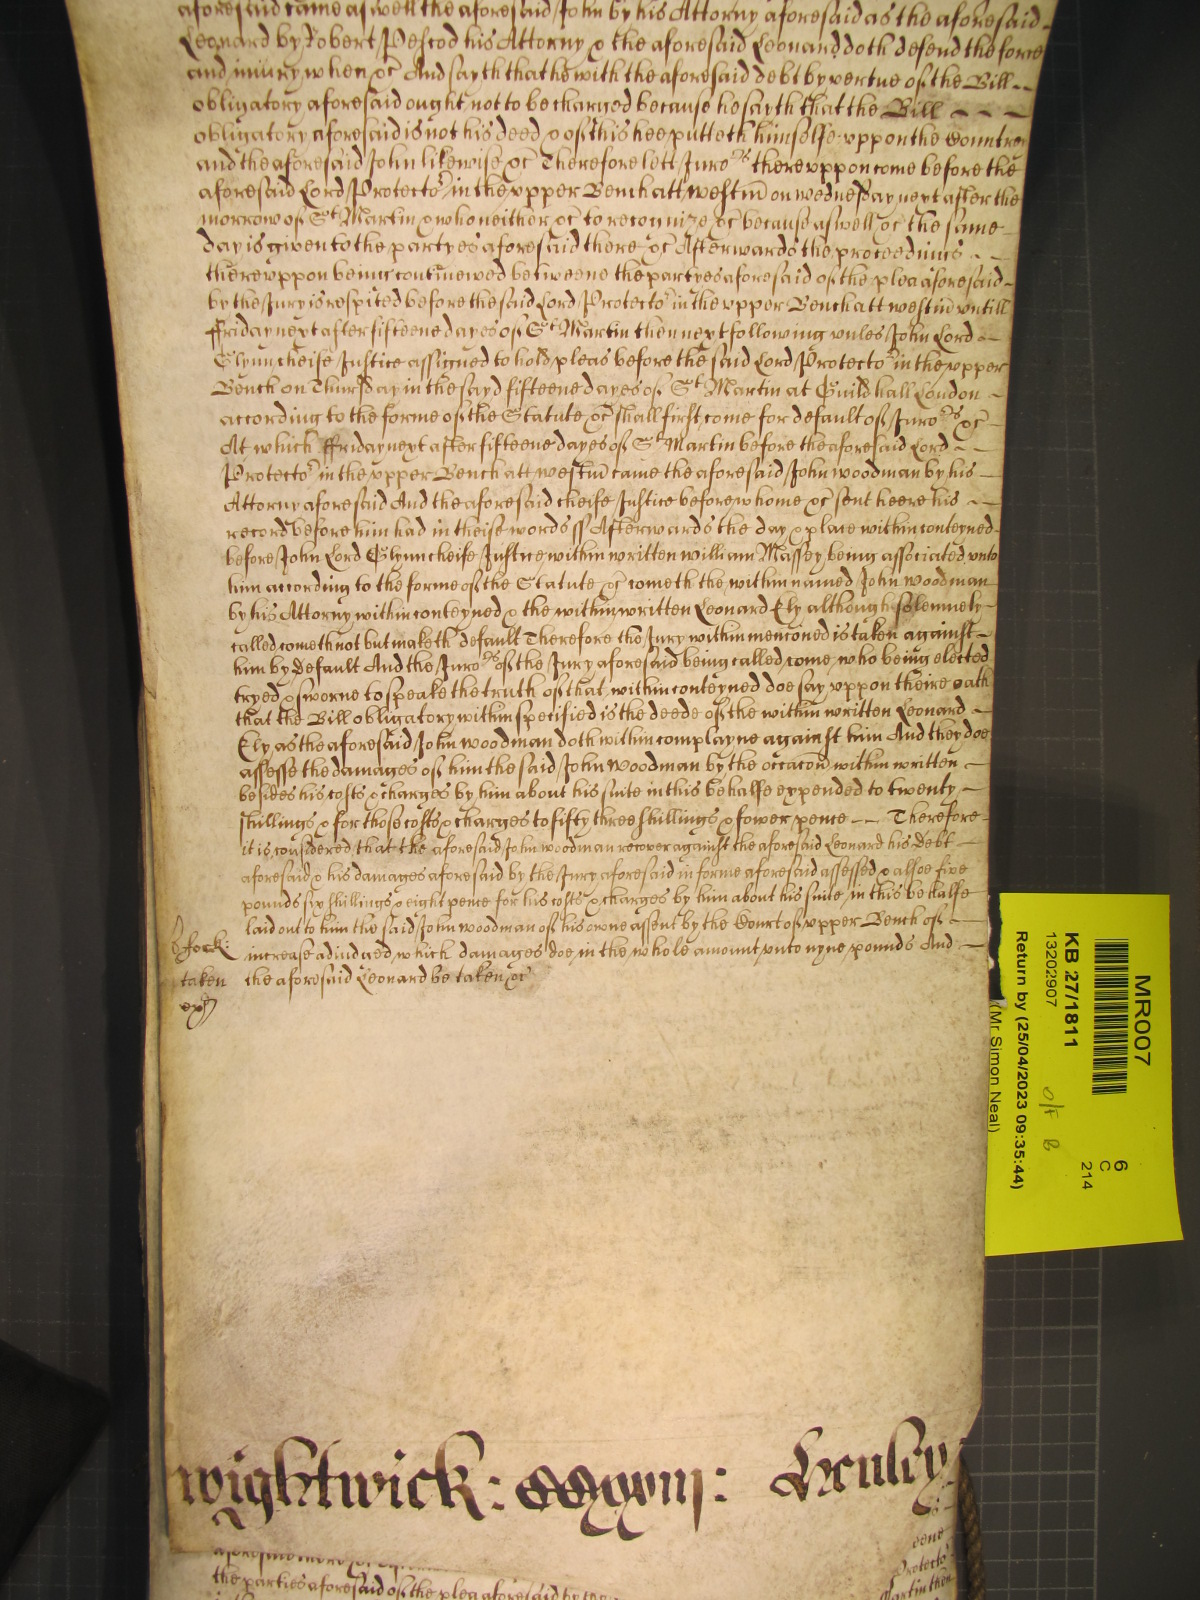 aforesaid came aswell the aforesaid John by his Attorny aforesaid as the aforesaid
Leonard by Robert Pescod his Attorny & the aforesaid Leonard doth defend the force
and iniury when &c And sayth that he with the aforesaid debt by vertue of the Bill
obligatory aforesaid ought not to be charged because he sayth that the Bill
obligatory aforesaid is not his deed & of this hee putteth himselfe vppon the Countrey
and the aforesaid John likewise &c Therefore lett Juro.rs therevppon come before the
aforesaid Lord Protecto.r in the vpper Bench att westm̄ on wednesday next after the
morrow of S.t Martin & who neither &c to recognize &c because aswell &c the same
day is given to the partyes aforesaid there &c Afterwards the proceedings
therevppon being contînewed betweene the partyes aforesaid of the plea aforesaid
by the Jury is respited before the said Lord Protecto.r in the vpper Bench att westm̄ vntill
ffriday next after fifteene dayes of S.t Martin then next following vnles John Lord
Glynn cheife Justice assigned to hold pleas before the said Lord Protecto.r in the vpper
Bench on Thursday in the sayd fifteene dayes of S.t Martin at Guildhall London
according to the forme of the Statute &c shall first come for default of Juro.rs &c
At which ffriday next after fifteene dayes of S.t Martin before the aforesaid Lord
Protecto.r in the vpper Bench att westm̄ came the aforesaid John woodman by his
Attorny aforesaid And the aforesaid cheife Justice before whome &c sent heere his
record before him had in theise words ss Afterwards the day & place within conteyned
before John Lord Glynn cheife Justice within written william Massey being associated vnto
him according to the forme of the Statute &c cometh the within named John woodman
by his Attorny within conteyned & the within written Leonard Ely although solemnely
called cometh not but maketh default Therefore the Jury within mentioned is taken against
him by Default And the Juro.rs of the Jury aforesaid being called come who being elected
tryed & sworne to speake the truth of that within conteyned doe say vppon theire oath
that the Bill obligatory within specified is the deede of the within written Leonard
Ely as the aforesaid John woodman doth within complayne against him And they doe
assesse the damages of him the said John Woodman by the occacon within written
besides his costs & charges by him about his suite in this behalfe expended to twenty
shillings & for those costs & charges to fifty three shillings & fower pence Therefore
it is considered that the aforesaid John woodman recover against the aforesaid Leonard his Debt
aforesaid & his damages aforesaid by the Jury aforesaid in forme aforesaid assessed & alsoe five
pounds six shillings & eight pence for his costs & charges by him about his suite in this behalfe
laid out to him the said John woodman of his owne assent by the Court of vpper Bench of
increase adiudged which damages doe in the whole amount vnto nyne pounds And
the aforesaid Leonard be taken &c
taken
wightwick: CCxxiij: Henley
the parties aforesaid of the plea aforesaid by the
Protecto.r
Martin then
MR007
KB 27/1811
13202907
Return by (25/04/2023 09:35:44)
(Mr Simon Neal)
6
C
214
O/F B